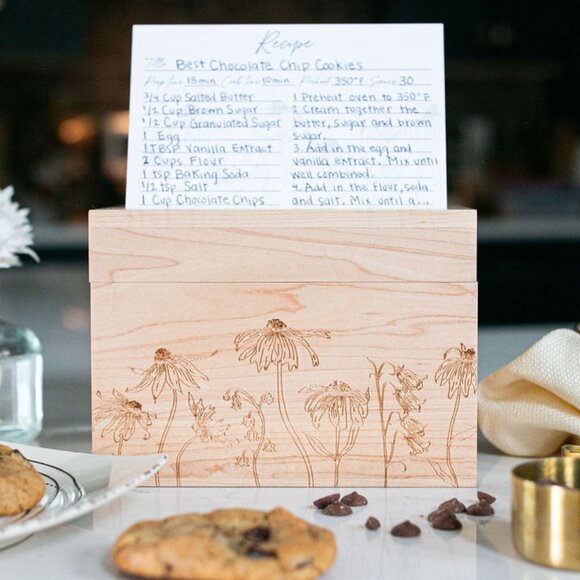 Recipe
Title Best Chocolate Chip Cookies
Prep time 15 min Cook time 10 min Preheat 350°F Serves 30
3/4 Cup Salted Butter
1/2 Cup Brown Sugar
1/2 Cup Granulated Sugar
1 Egg
1 TBSP Vanilla Extract
2 Cups Flour
1 tsp Baking Soda
1/2 tsp Salt
1 Cup Chocolate Chips
1 Preheat oven to 350°F
2. Cream together the
butter, sugar and brown
sugar.
3. Add in the egg and
vanilla extract. Mix until
well combined.
4. Add in the flour, soda
and salt. Mix until a...